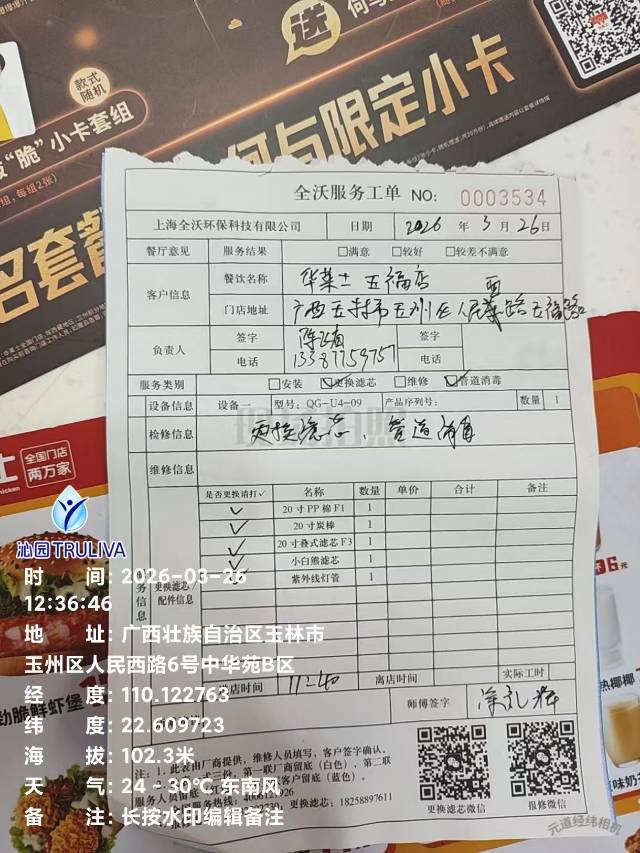 送
何与
款式
随机
“脆”小卡套组
每组2张)
何与限定小卡
名套餐
全沃服务工单 NO: 0003534
上海全沃环保科技有限公司 日期 2026 年 3 月 26 日
餐厅意见 服务结果 □满意 □较好 □较差不满意
客户信息 餐饮名称 华莱士五福店
门店地址 广西玉林市玉州区人民西路五福路口
负责人 签字 签字
电话 13387759757 电话
服务类别 □安装 ☑更换滤芯 □维修 ☑管道消毒
设备信息 设备一 型号: QG-U4-09 产品序列号: 数量 1
检修信息 更换滤芯、管道消毒
维修信息
更换滤芯/配件信息
是否更换请打✓ 名称 数量 单价 合计 备注
✓ 20寸PP棉F1 1
✓ 20寸炭棒 1
✓ 20寸叠式滤芯F3 1
✓ 小白熊滤芯 1
紫外线灯管 1
务信息
店时间 11:40 离店时间 实际工时
师傅签字
注: 1. 此表由厂商提供,维修人员填写,客户签字确认。
式三份,第一联厂商留底(白色),第二联
服务人员留底 客户留底(蓝色)。
服务热线: 更换滤芯: 18258897611
更换滤芯微信 报修微信
全国门店
两万家
士
劲脆鲜虾堡
热椰椰
元道经纬相机
沁园TRULIVA
时 间: 2026-03-26
12:36:46
地 址: 广西壮族自治区玉林市
玉州区人民西路6号中华苑B区
经 度: 110.122763
纬 度: 22.609723
海 拔: 102.3米
天 气: 24~30℃ 东南风
备 注: 长按水印编辑备注